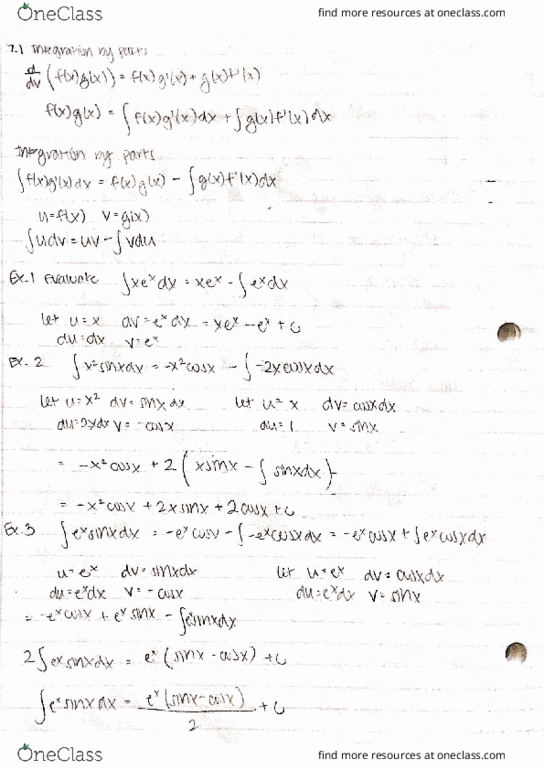 OneClass
find more resources at oneclass.com
7.1 Integration by parts
d/dx (f(x)g(x)) = f(x)g'(x) + g(x)f'(x)
f(x)g(x) = ∫f(x)g'(x)dx + ∫g(x)f'(x)dx
Integration by parts
∫f(x)g'(x)dx = f(x)g(x) - ∫g(x)f'(x)dx
u=f(x) v=g(x)
∫udv=uv-∫vdu
Ex.1 Evaluate ∫xeˣdx = xeˣ - ∫eˣdx
let u=x dv=eˣdx = xeˣ - eˣ + C
du=dx v=eˣ
Ex. 2 ∫x²sinxdx = -x²cosx - ∫-2xcosxdx
let u=x² dv=sinxdx let u=x dv=cosxdx
du=2xdx v=-cosx du=1 v=sinx
= -x²cosx + 2(xsinx - ∫sinxdx)
= -x²cosx + 2xsinx + 2cosx + C
Ex.3 ∫eˣsinxdx = -eˣcosx - ∫-eˣcosxdx = -eˣcosx + ∫eˣcosxdx
u=eˣ dv=sinxdx let u=eˣ dv=cosxdx
du=eˣdx v=-cosx du=eˣdx v=sinx
= -eˣcosx + eˣsinx - ∫eˣsinxdx
2∫eˣsinxdx = eˣ(sinx-cosx) + C
∫eˣsinxdx = eˣ(sinx-cosx)/2 + C
OneClass
find more resources at oneclass.com